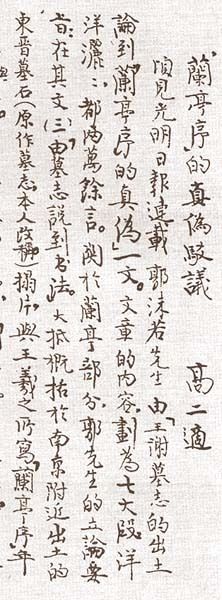 「蘭亭序」的真偽駁議　高二適
頃見光明日報連載郭沫若先生「由王謝墓志的出土
論到「蘭亭序」的真偽」一文。文章的內容，劃為七大段，洋
洋灑灑，都為萬餘言。関於蘭亭部分，郭先生的立論要
旨：在其文(三)「由墓志說到書法」。大抵概括於南京附近出土的
東晉墓石（原作墓志，本人改稱）搨片，與王羲之所寫「蘭亭序」年